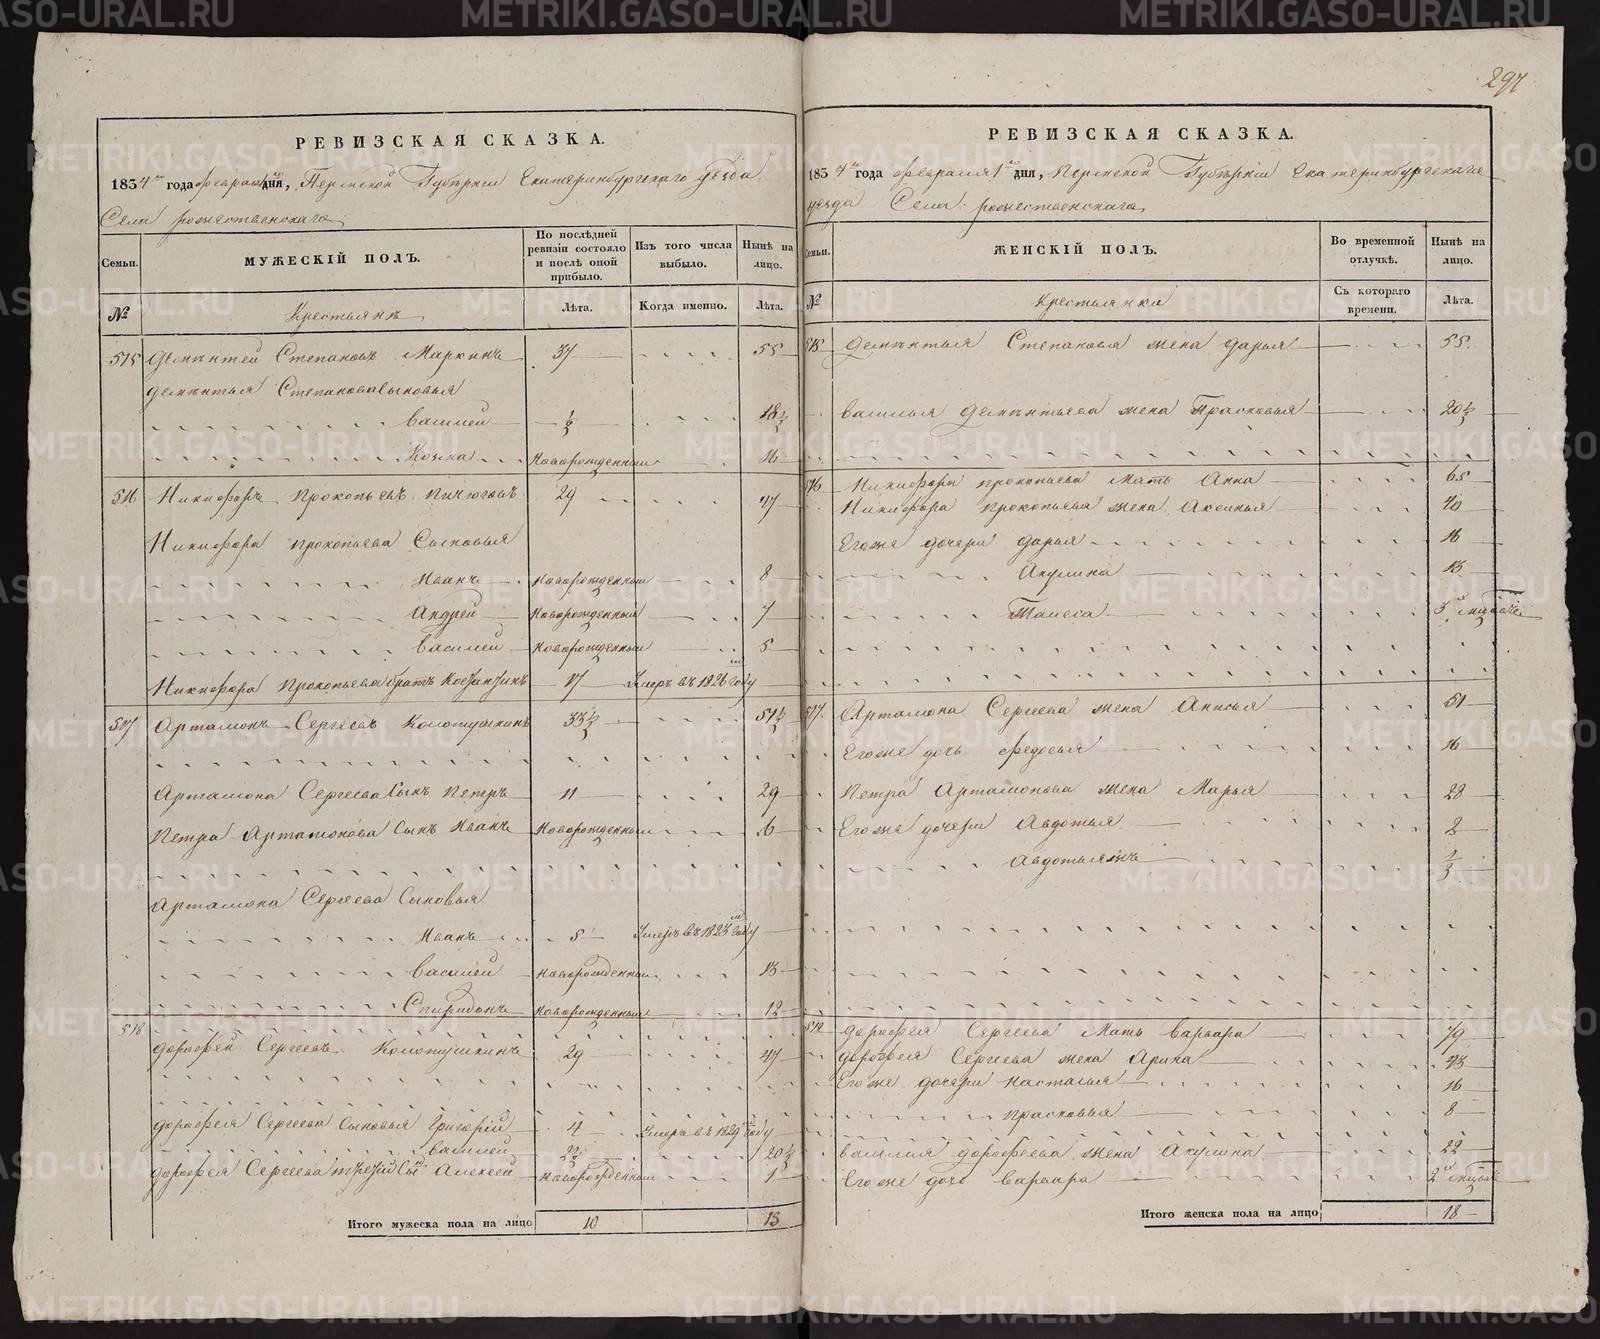 297
РЕВИЗСКАЯ СКАЗКА.
1834 года февраля дня, Пермской Губернiи Екатеринбургскаго уезда
Села рожественскаго
Семьи. МУЖЕСКIЙ ПОЛЪ. По послѣдней ревизiи состояло и послѣ оной прибыло. Изъ того числа выбыло. Нынѣ на лицо.
№ Крестьянъ Лѣта. Когда именно. Лѣта.
515 Дементей Степановъ Маркинъ 37 55
Дементья Степанова Сыновья
Василей ½ 18½
Козма Новорожденный 16
516 Никифоръ Прокопьевъ Пичюговъ 29 47
Никифора Прокопьева Сыновья
Иванъ Новорожденный 8
Андрей Новорожденный 7
Василей Новорожденный 5
Никифора Прокопьева братъ 17 Умеръ въ 1826 году
517 Артамонъ Сергеевъ Колотушкинъ 33½ 51½
Артамона Сергеева Сынъ Петръ 11 29
Петра Артамонова Сынъ Иванъ Новорожденный 6
Артамона Сергеева Сыновья
Иванъ 5 Умеръ въ 1823 году
Василей Новорожденный 13
Спиридонъ Новорожденный 12
518 Дорофей Сергеевъ Колотушкинъ 29 47
Дорофея Сергеева Сыновья Григорiй 4 Умеръ въ 1829 году
Василей 2½ 20½
Дорофея Сергеева третiй Сынъ Алексей Новорожденный 1
Итого мужеска пола на лицо 10 13
РЕВИЗСКАЯ СКАЗКА.
1834 года февраля дня, Пермской Губернiи Екатеринбургскаго
уезда Села рожественскаго
Семьи. ЖЕНСКIЙ ПОЛЪ. Во временной отлучкѣ. Нынѣ на лицо.
№ Крестьянки Съ котораго времени. Лѣта.
515 Дементья Степанова жена Дарья 55
Василья Дементьева жена Прасковья 20½
516 Никифора Прокопьева Мать Анна 65
Никифора Прокопьева жена Аксинья 40
Его же дочери Дарья 16
Акулина 13
Таисса 3
517 Артамона Сергеева жена Анисья 51
Его же дочь Федосья 16
Петра Артамонова жена Марья 28
Его же дочери Авдотья 2
Авдотья жъ ½
518 Дорофея Сергеева Мать Варвара 79
Дорофея Сергеева жена Арина 43
Его же дочери Настасья 16
Прасковья 8
Василья Дорофеева жена Акулина 22
Его же дочь Варвара 2
Итого женска пола на лицо 18
METRIKI.GASO-URAL.RU